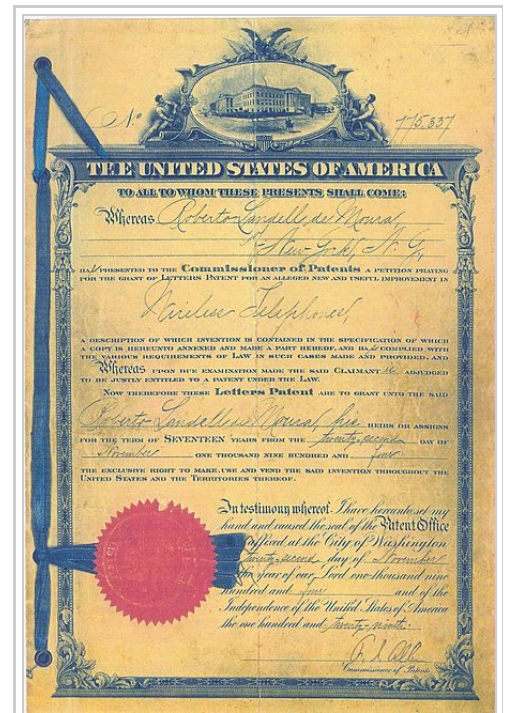 No. 775.337
THE UNITED STATES OF AMERICA
TO ALL TO WHOM THESE PRESENTS SHALL COME:
Whereas Roberto Landell de Moura,
of New-York, N. Y.,
HAS PRESENTED TO THE Commissioner of Patents A PETITION PRAYING
FOR THE GRANT OF LETTERS PATENT FOR AN ALLEGED NEW AND USEFUL IMPROVEMENT IN
Wireless Telephones,
A DESCRIPTION OF WHICH INVENTION IS CONTAINED IN THE SPECIFICATION OF WHICH
A COPY IS HEREUNTO ANNEXED AND MADE A PART HEREOF, AND HAS COMPLIED WITH
THE VARIOUS REQUIREMENTS OF LAW IN SUCH CASES MADE AND PROVIDED, AND
Whereas UPON DUE EXAMINATION MADE THE SAID CLAIMANT is ADJUDGED
TO BE JUSTLY ENTITLED TO A PATENT UNDER THE LAW.
NOW THEREFORE THESE Letters Patent ARE TO GRANT UNTO THE SAID
Roberto Landell de Moura, his HEIRS OR ASSIGNS
FOR THE TERM OF SEVENTEEN YEARS FROM THE twenty-second DAY OF
November ONE THOUSAND NINE HUNDRED AND four
THE EXCLUSIVE RIGHT TO MAKE, USE AND VEND THE SAID INVENTION THROUGHOUT THE
UNITED STATES AND THE TERRITORIES THEREOF.
In testimony whereof I have hereunto set my
hand and caused the seal of the Patent Office
to be affixed at the City of Washington
this twenty-second day of November
in the year of our Lord one thousand nine
hundred and four and of the
Independence of the United States of America
the one hundred and twenty-ninth.
F. I. Allen
Commissioner of Patents